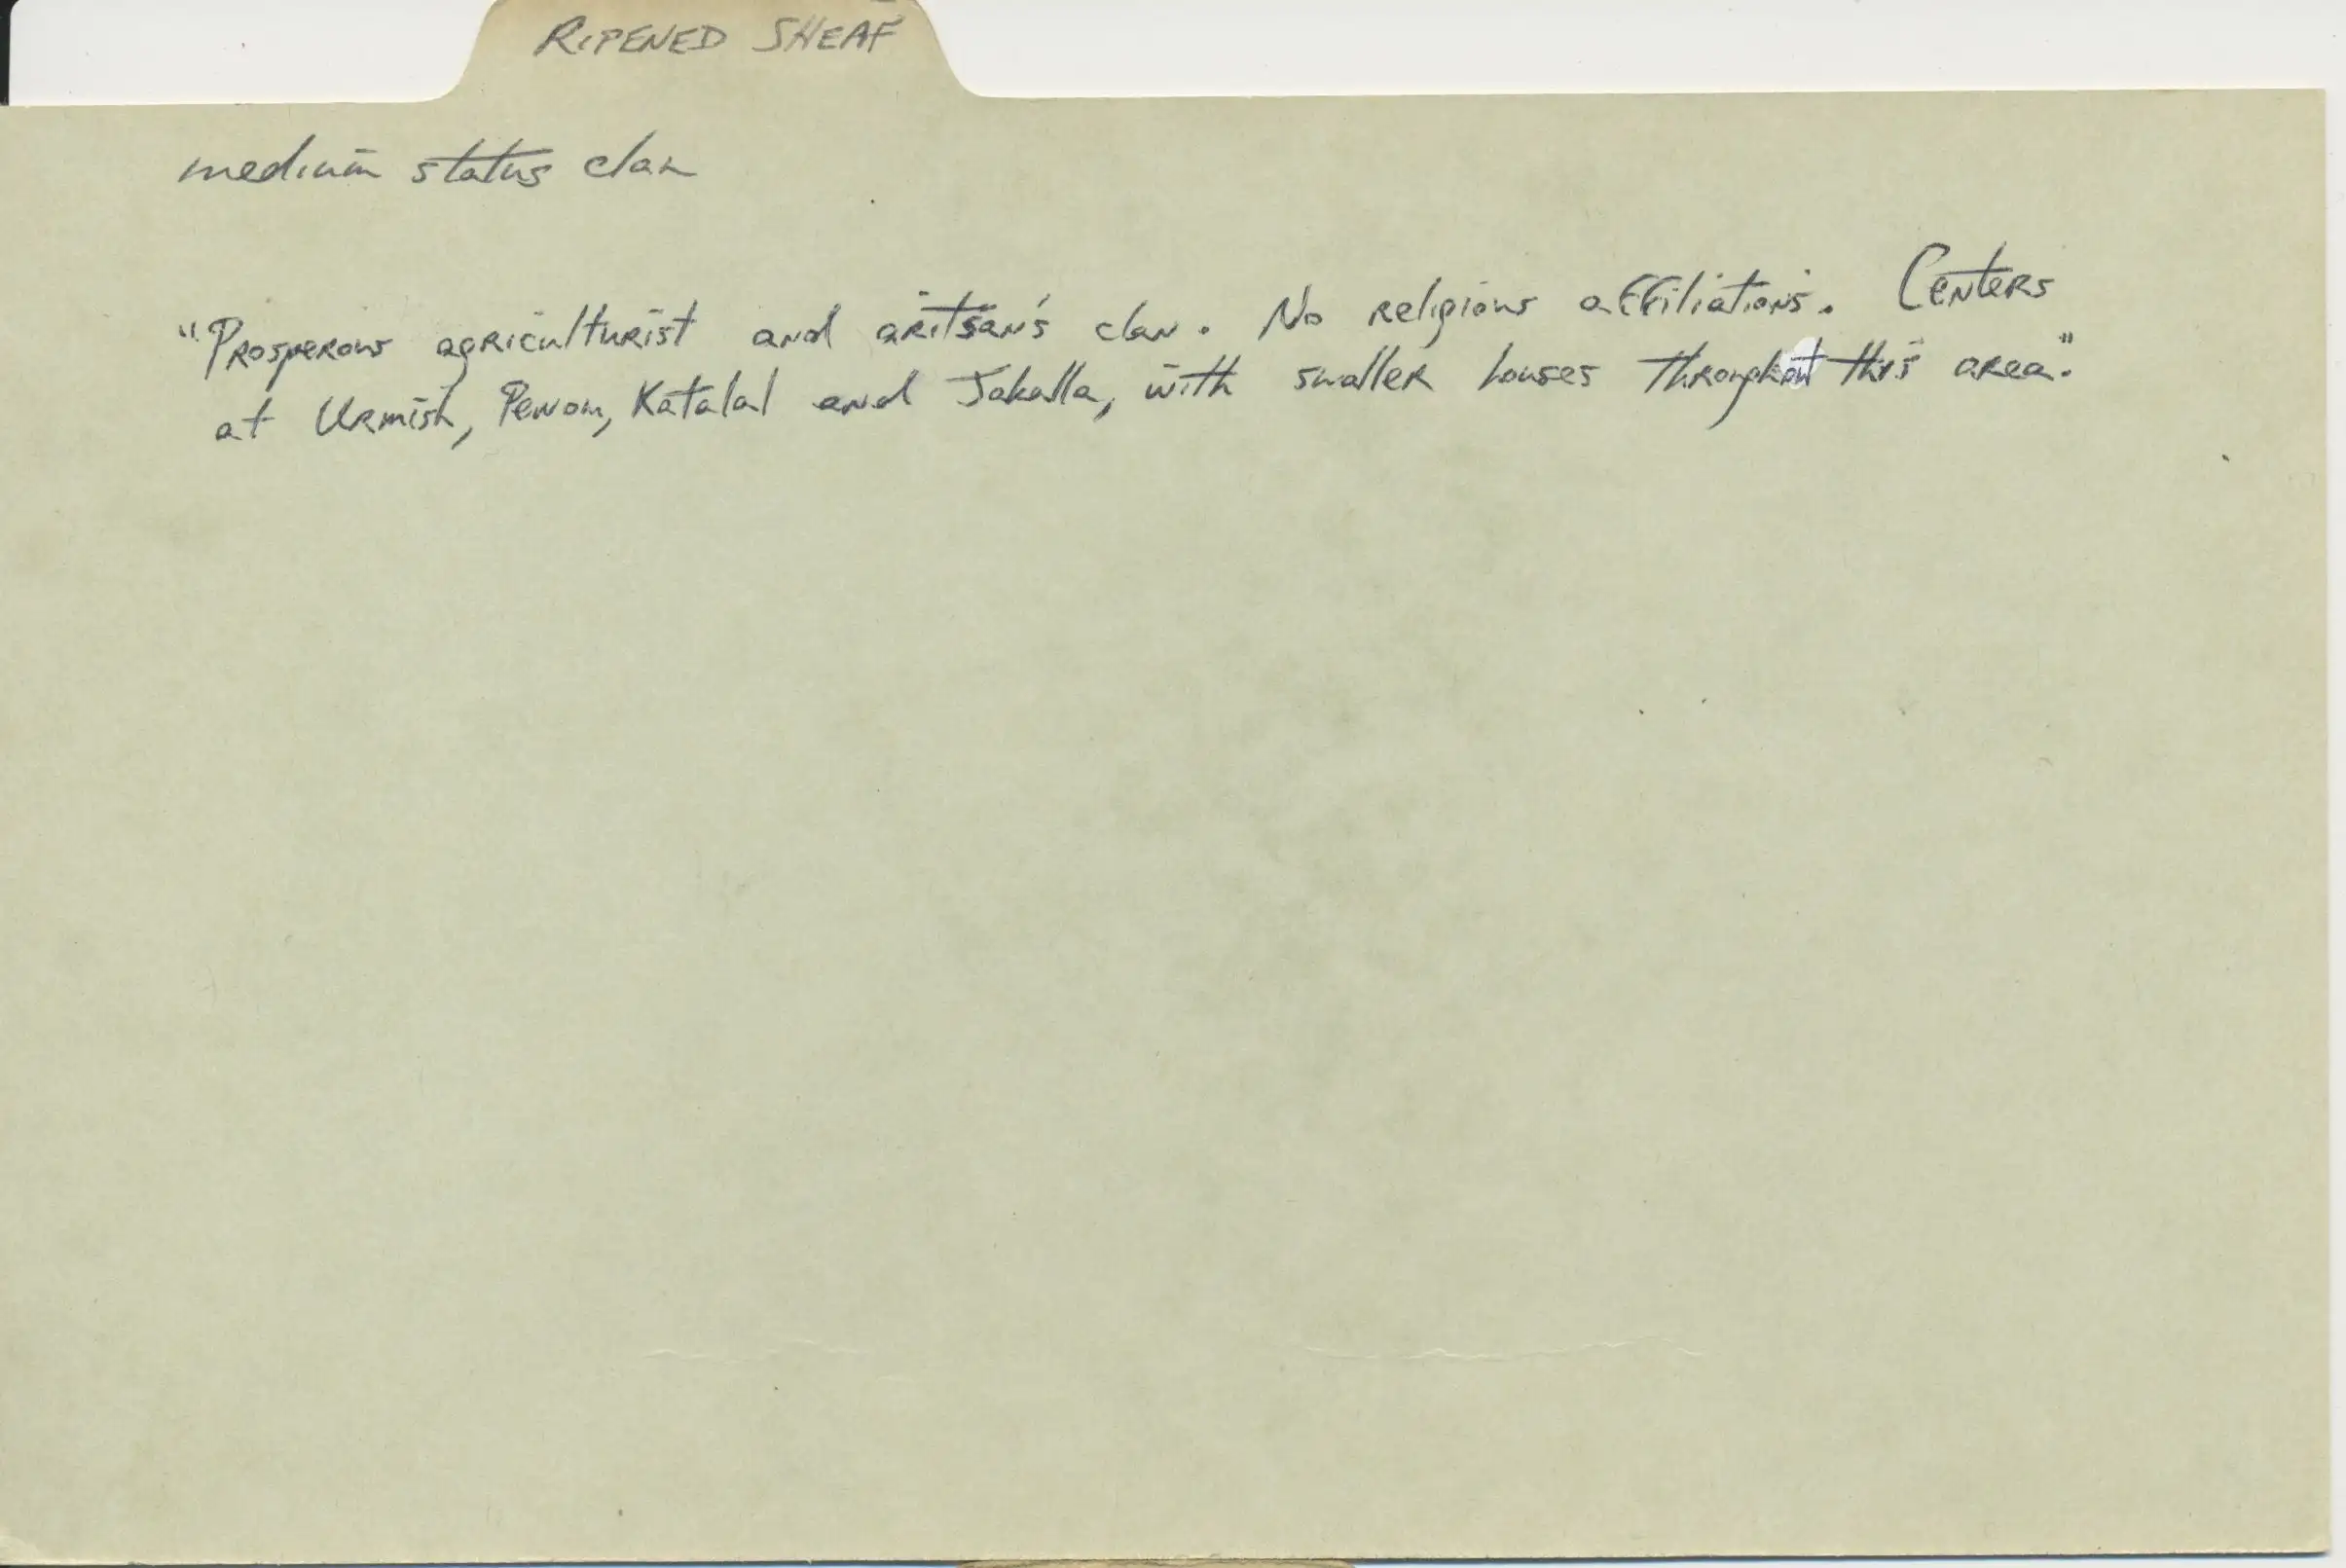 RIPENED SHEAF
medium status clan
"Prosperous agriculturist and aritsan's clan. No religious affiliations. Centers
at Urmish, Penom, Katalal and Jakalla, with smaller houses throughout this area."